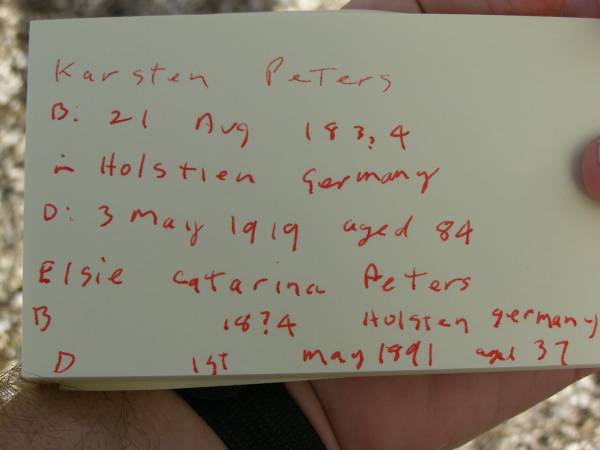 Karsten Peters
B: 21 Aug 183?4
in Holstien Germany
D: 3 May 1919 aged 84
Elsie Catarina Peters
B 18?4 Holsten germany
D 1st may 1891 aged 37